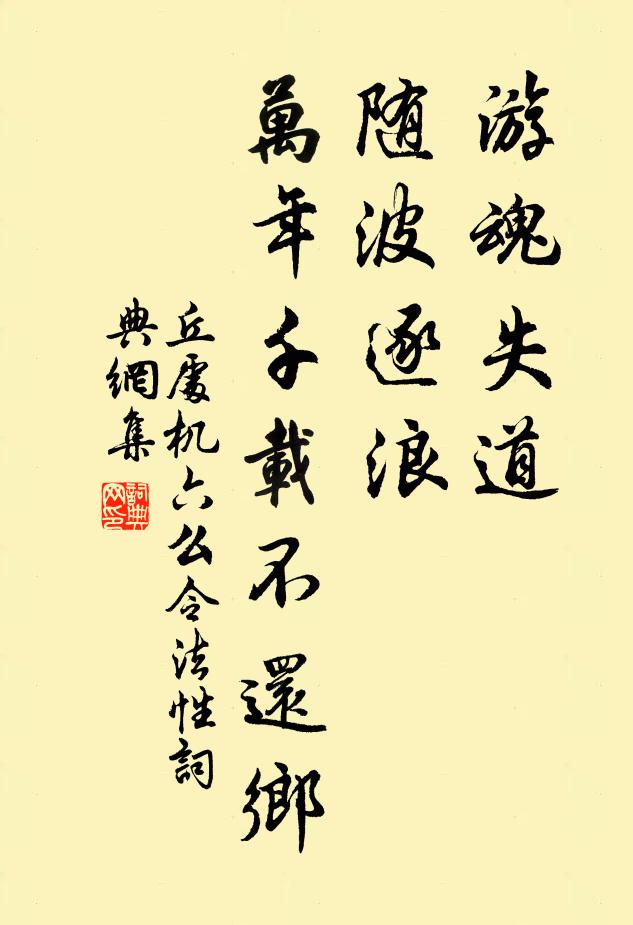 游魂失道
随波逐浪
萬年千載不還鄉
丘處机六么令法性詞
典網集
詞典网印